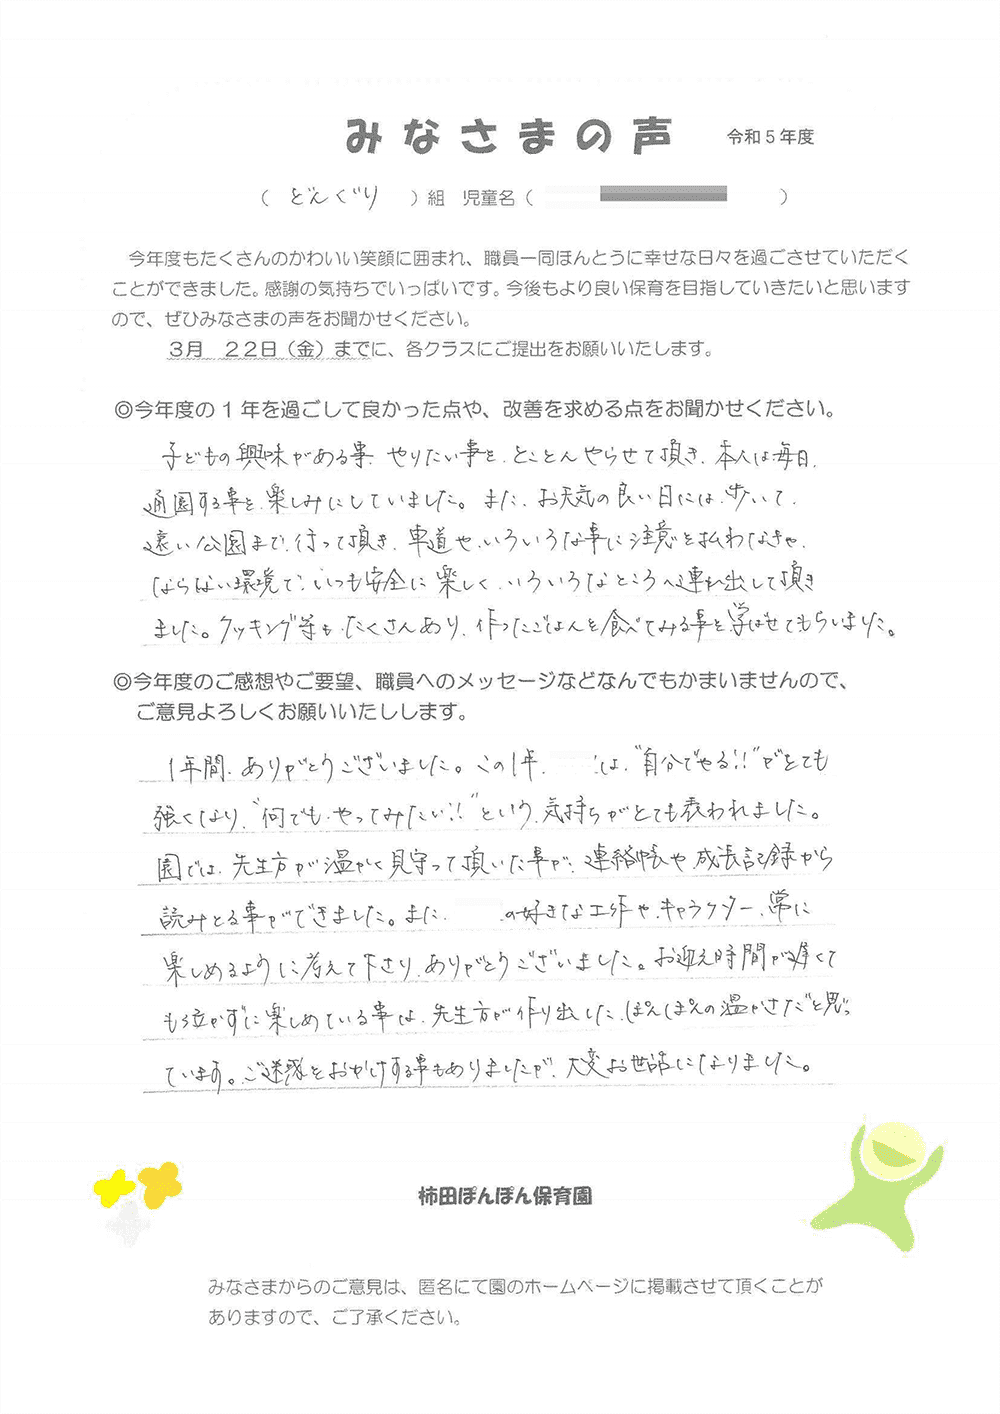 みなさまの声 令和5年度
( どんぐり )組 児童名( )
今年度もたくさんのかわいい笑顔に囲まれ、職員一同ほんとうに幸せな日々を過ごさせていただく
ことができました。感謝の気持ちでいっぱいです。今後もより良い保育を目指していきたいと思います
ので、ぜひみなさまの声をお聞かせください。
3月 22日(金)までに、各クラスにご提出をお願いいたします。
◎今年度の1年を過ごして良かった点や、改善を求める点をお聞かせください。
子どもの興味がある事、やりたい事を、とことんやらせて頂き、本人は毎日、
通園する事を、楽しみにしていました。また、お天気の良い日には、歩いて、
遠い公園まで、行って頂き、車道や、いろいろな事に注意を払わなきゃ、
ならない環境で、いつも安全に楽しく、いろいろなところへ連れ出して頂き
ました。クッキング等も、たくさんあり、作ったごはんを食べてみる事を学ばせてもらいました。
◎今年度のご感想やご要望、職員へのメッセージなどなんでもかまいませんので、
ご意見よろしくお願いいたしします。
1年間、ありがとうございました。この1年、 は、“自分でやる!!”がとても
強くなり、“何でも、やってみたい!!”という、気持ちがとても表われました。
園では、先生方が温かく見守って頂いた事が、連絡帳や、成長記録から
読みとる事ができました。また、 の好きな工作や、キャラクター、常に
楽しめるように考えて下さり、ありがとうございました。お迎え時間が遅くて
も泣かずに楽しめている事は、先生方が作り出した、ぽんぽんの温かさだと思っ
ています。ご迷惑をおかけする事もありましたが、大変お世話になりました。
柿田ぽんぽん保育園
みなさまからのご意見は、匿名にて園のホームページに掲載させて頂くことが
ありますので、ご了承ください。